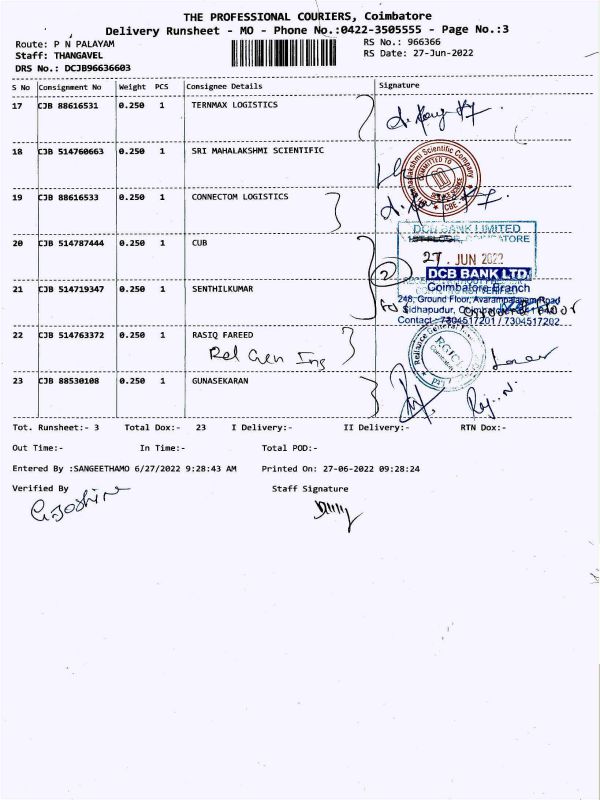 THE PROFESSIONAL COURIERS, Coimbatore
Delivery Runsheet - MO - Phone No.:0422-3505555 - Page No.:3
Route: P N PALAYAM
RS No.: 966366
Staff: THANGAVEL
RS Date: 27-Jun-2022
DRS No.: DCJB96636603
S No Consignment No Weight PCS Consignee Details Signature
17 CJB 88616531 0.250 1 TERNMAX LOGISTICS
18 CJB 514760663 0.250 1 SRI MAHALAKSHMI SCIENTIFIC
19 CJB 88616533 0.250 1 CONNECTOM LOGISTICS
20 CJB 514787444 0.250 1 CUB
DCB BANK LIMITED
27 . JUN 2022
2
DCB BANK LTD
21 CJB 514719347 0.250 1 SENTHILKUMAR
Coimbatore Branch
248, Ground Floor, Avarampalayam Road
Sidhapudur,
Contact : 7304517201 / 7304517202
22 CJB 514763372 0.250 1 RASIQ FAREED
Rel Gen Ins
Reliance General
RGICL
23 CJB 88530108 0.250 1 GUNASEKARAN
Tot. Runsheet:- 3 Total Dox:- 23 I Delivery:- II Delivery:- RTN Dox:-
Out Time:- In Time:- Total POD:-
Entered By :SANGEETHAMO 6/27/2022 9:28:43 AM Printed On: 27-06-2022 09:28:24
Verified By Staff Signature